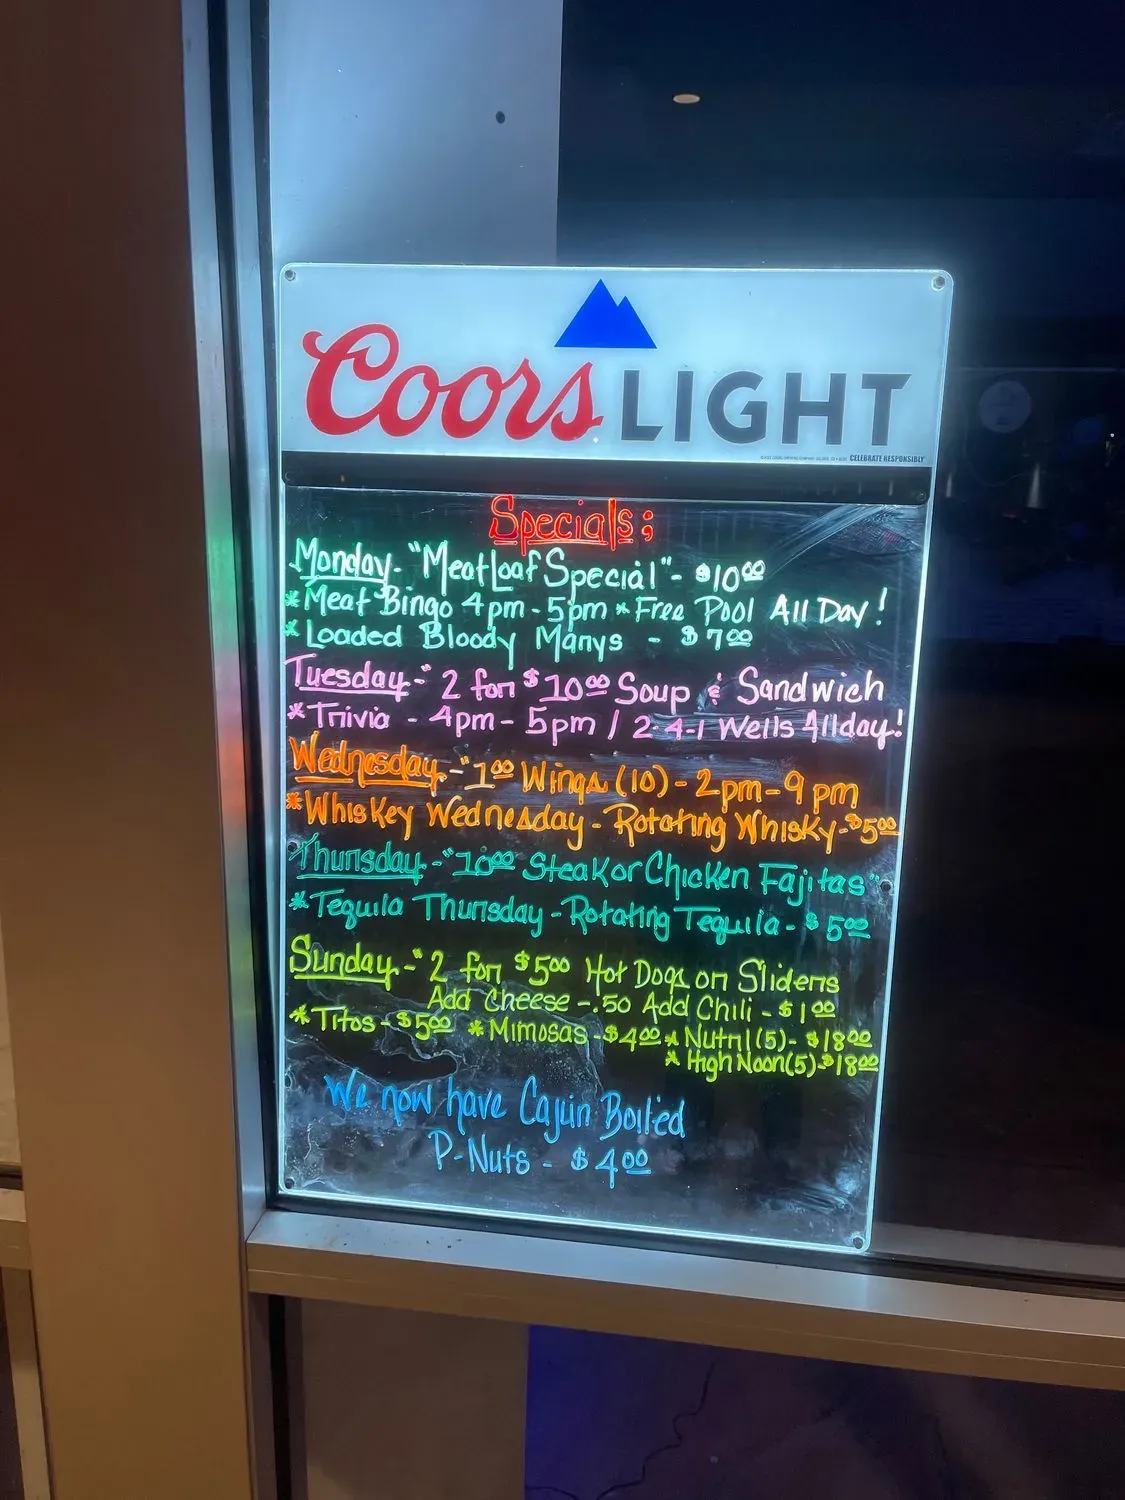 Coors LIGHT
CELEBRATE RESPONSIBLY
Specials;
Monday- "MeatLoaf Special"- $10⁰⁰
*Meat Bingo 4pm-5pm * Free Pool All Day!
*Loaded Bloody Marys - $7⁰⁰
Tuesday-" 2 for $10⁰⁰ Soup & Sandwich
*Trivia - 4pm-5pm / 2-4-1 Wells Allday!
Wednesday-"1⁰⁰ Wings (10)-2pm-9pm
*Whiskey Wednesday-Rotating Whisky-$5⁰⁰
Thursday-"10⁰⁰ Steak or Chicken Fajitas"
*Tequila Thursday-Rotating Tequila-$5⁰⁰
Sunday-" 2 for $5⁰⁰ Hot Dogs or Sliders
Add Cheese-.50 Add Chili-$1⁰⁰
*Titos-$5⁰⁰ *Mimosas-$4⁰⁰ * Nutrl(5)-$18⁰⁰
* High Noon(5)-$18⁰⁰
We now have Cajun Boil'ed
P-Nuts - $4⁰⁰